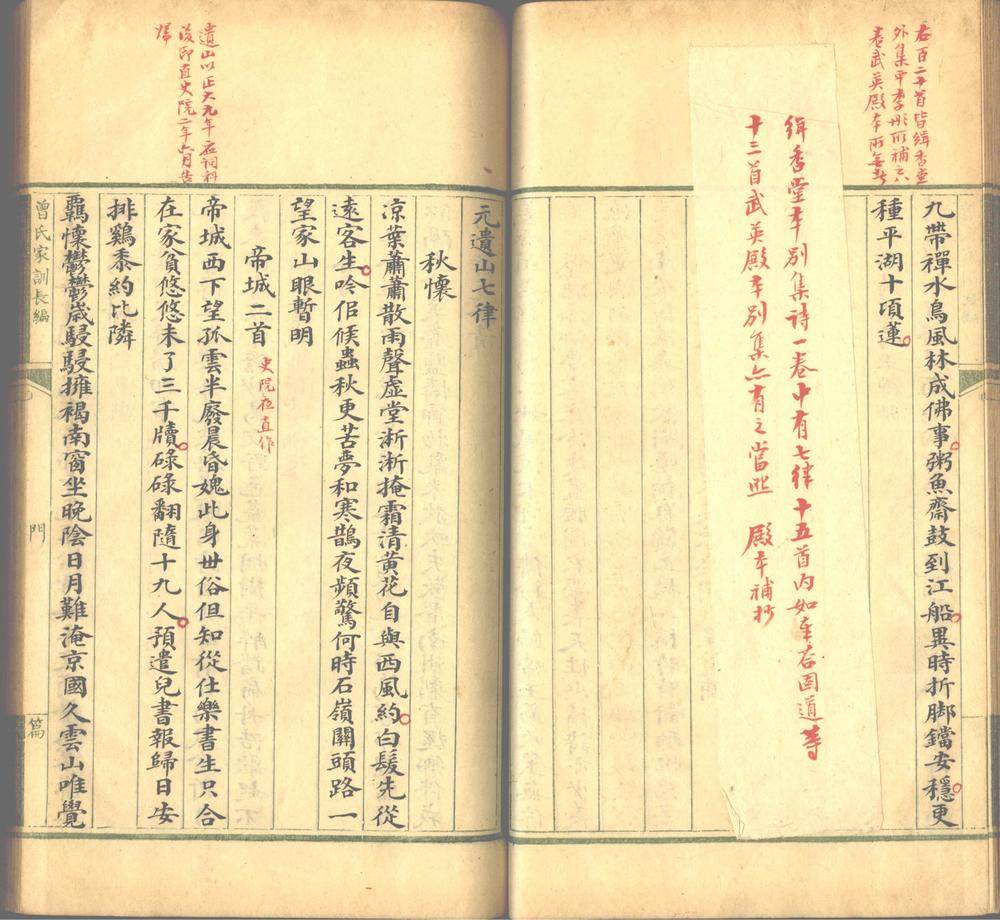 右百二十首皆緝香堂
外集甲季彤所補六
卷武英殿本所無者
九帶禪水鳥風林成佛事粥魚齋鼓到江船異時折脚鐺安穩更
種平湖十項蓮
緝香堂本別集詩一卷中有七律十五首內如本右固道等
十三首武英殿本別集亦有之當照 殿本補抄
遺山以正大九年应詞科
後即直史院二年六月告
歸
元遺山七律
秋懷
凉葉蕭蕭散雨聲虛堂淅淅掩霜清黃花自與西風約白髮先從
遠客生吟佀候蟲秋更苦夢和寒鵲夜頻驚何時石嶺關頭路一
望家山眼暫明
帝城二首 史院夜直作
帝城西下望孤雲半廢晨昏媿此身世俗但知從仕樂書生只合
在家貧悠悠未了三千牘碌碌翻隨十九人預遣兒書報歸日安
排鷄黍約比隣
羈懷鬱鬱歲駸駸擁褐南窗坐晚陰日月難淹京國久雲山唯覺
曾氏家訓長編
門
篇